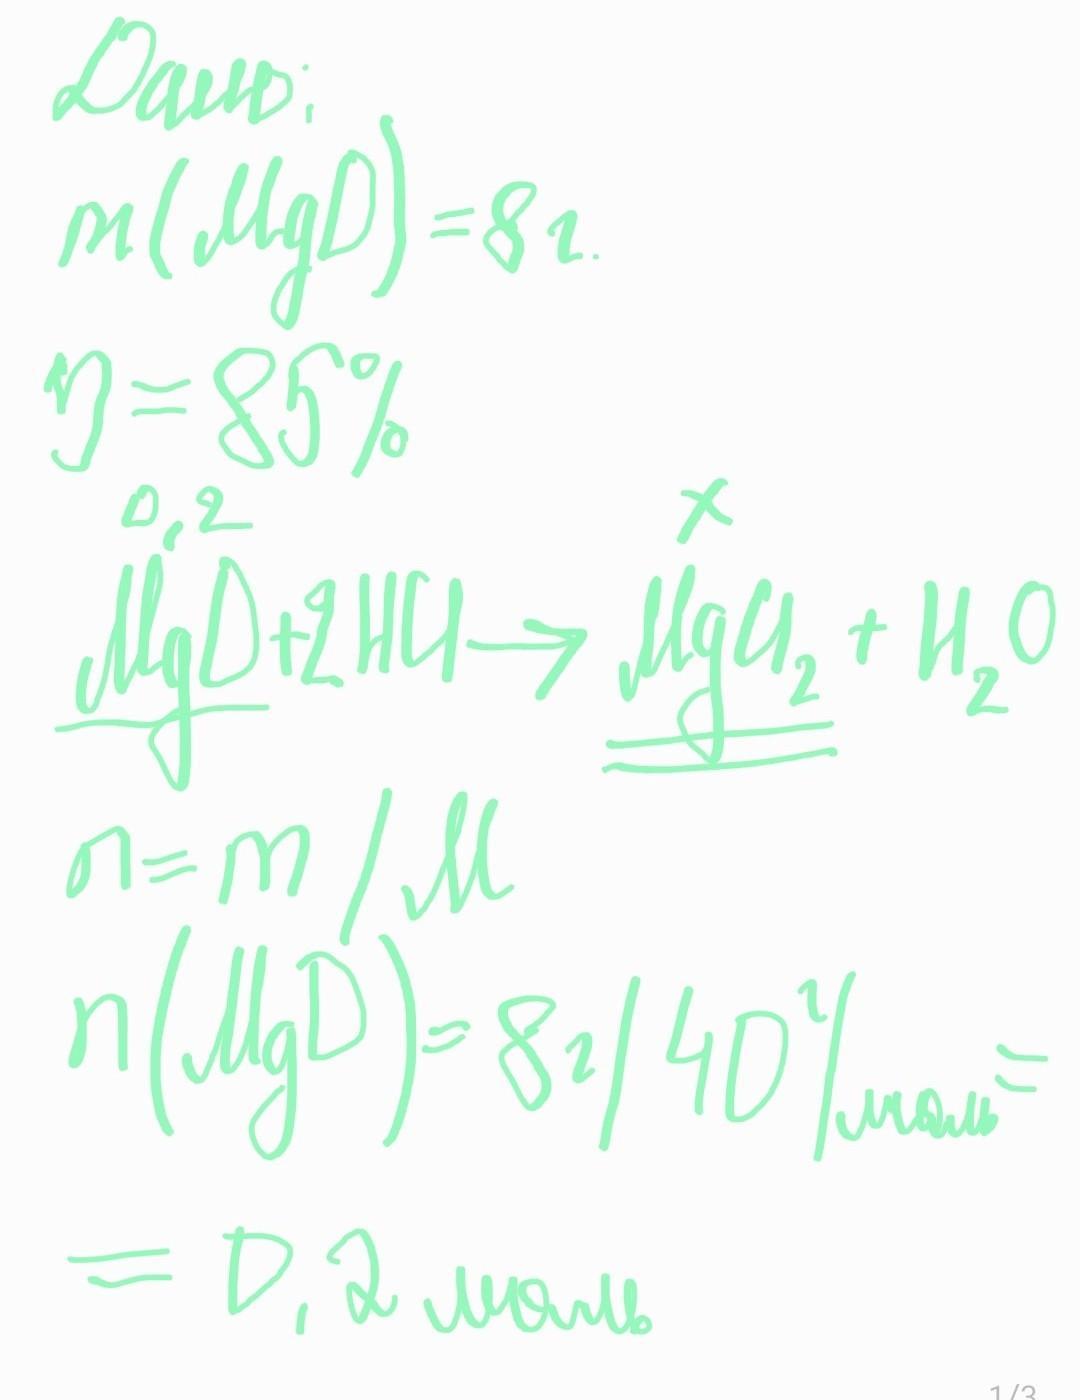 Дано:
m(MgO)=8г.
η=85%
0,2 x
MgO+2HCl→MgCl₂+H₂O
n=m/M
n(MgO)=8г/40г/моль=
=0,2моль
1/3